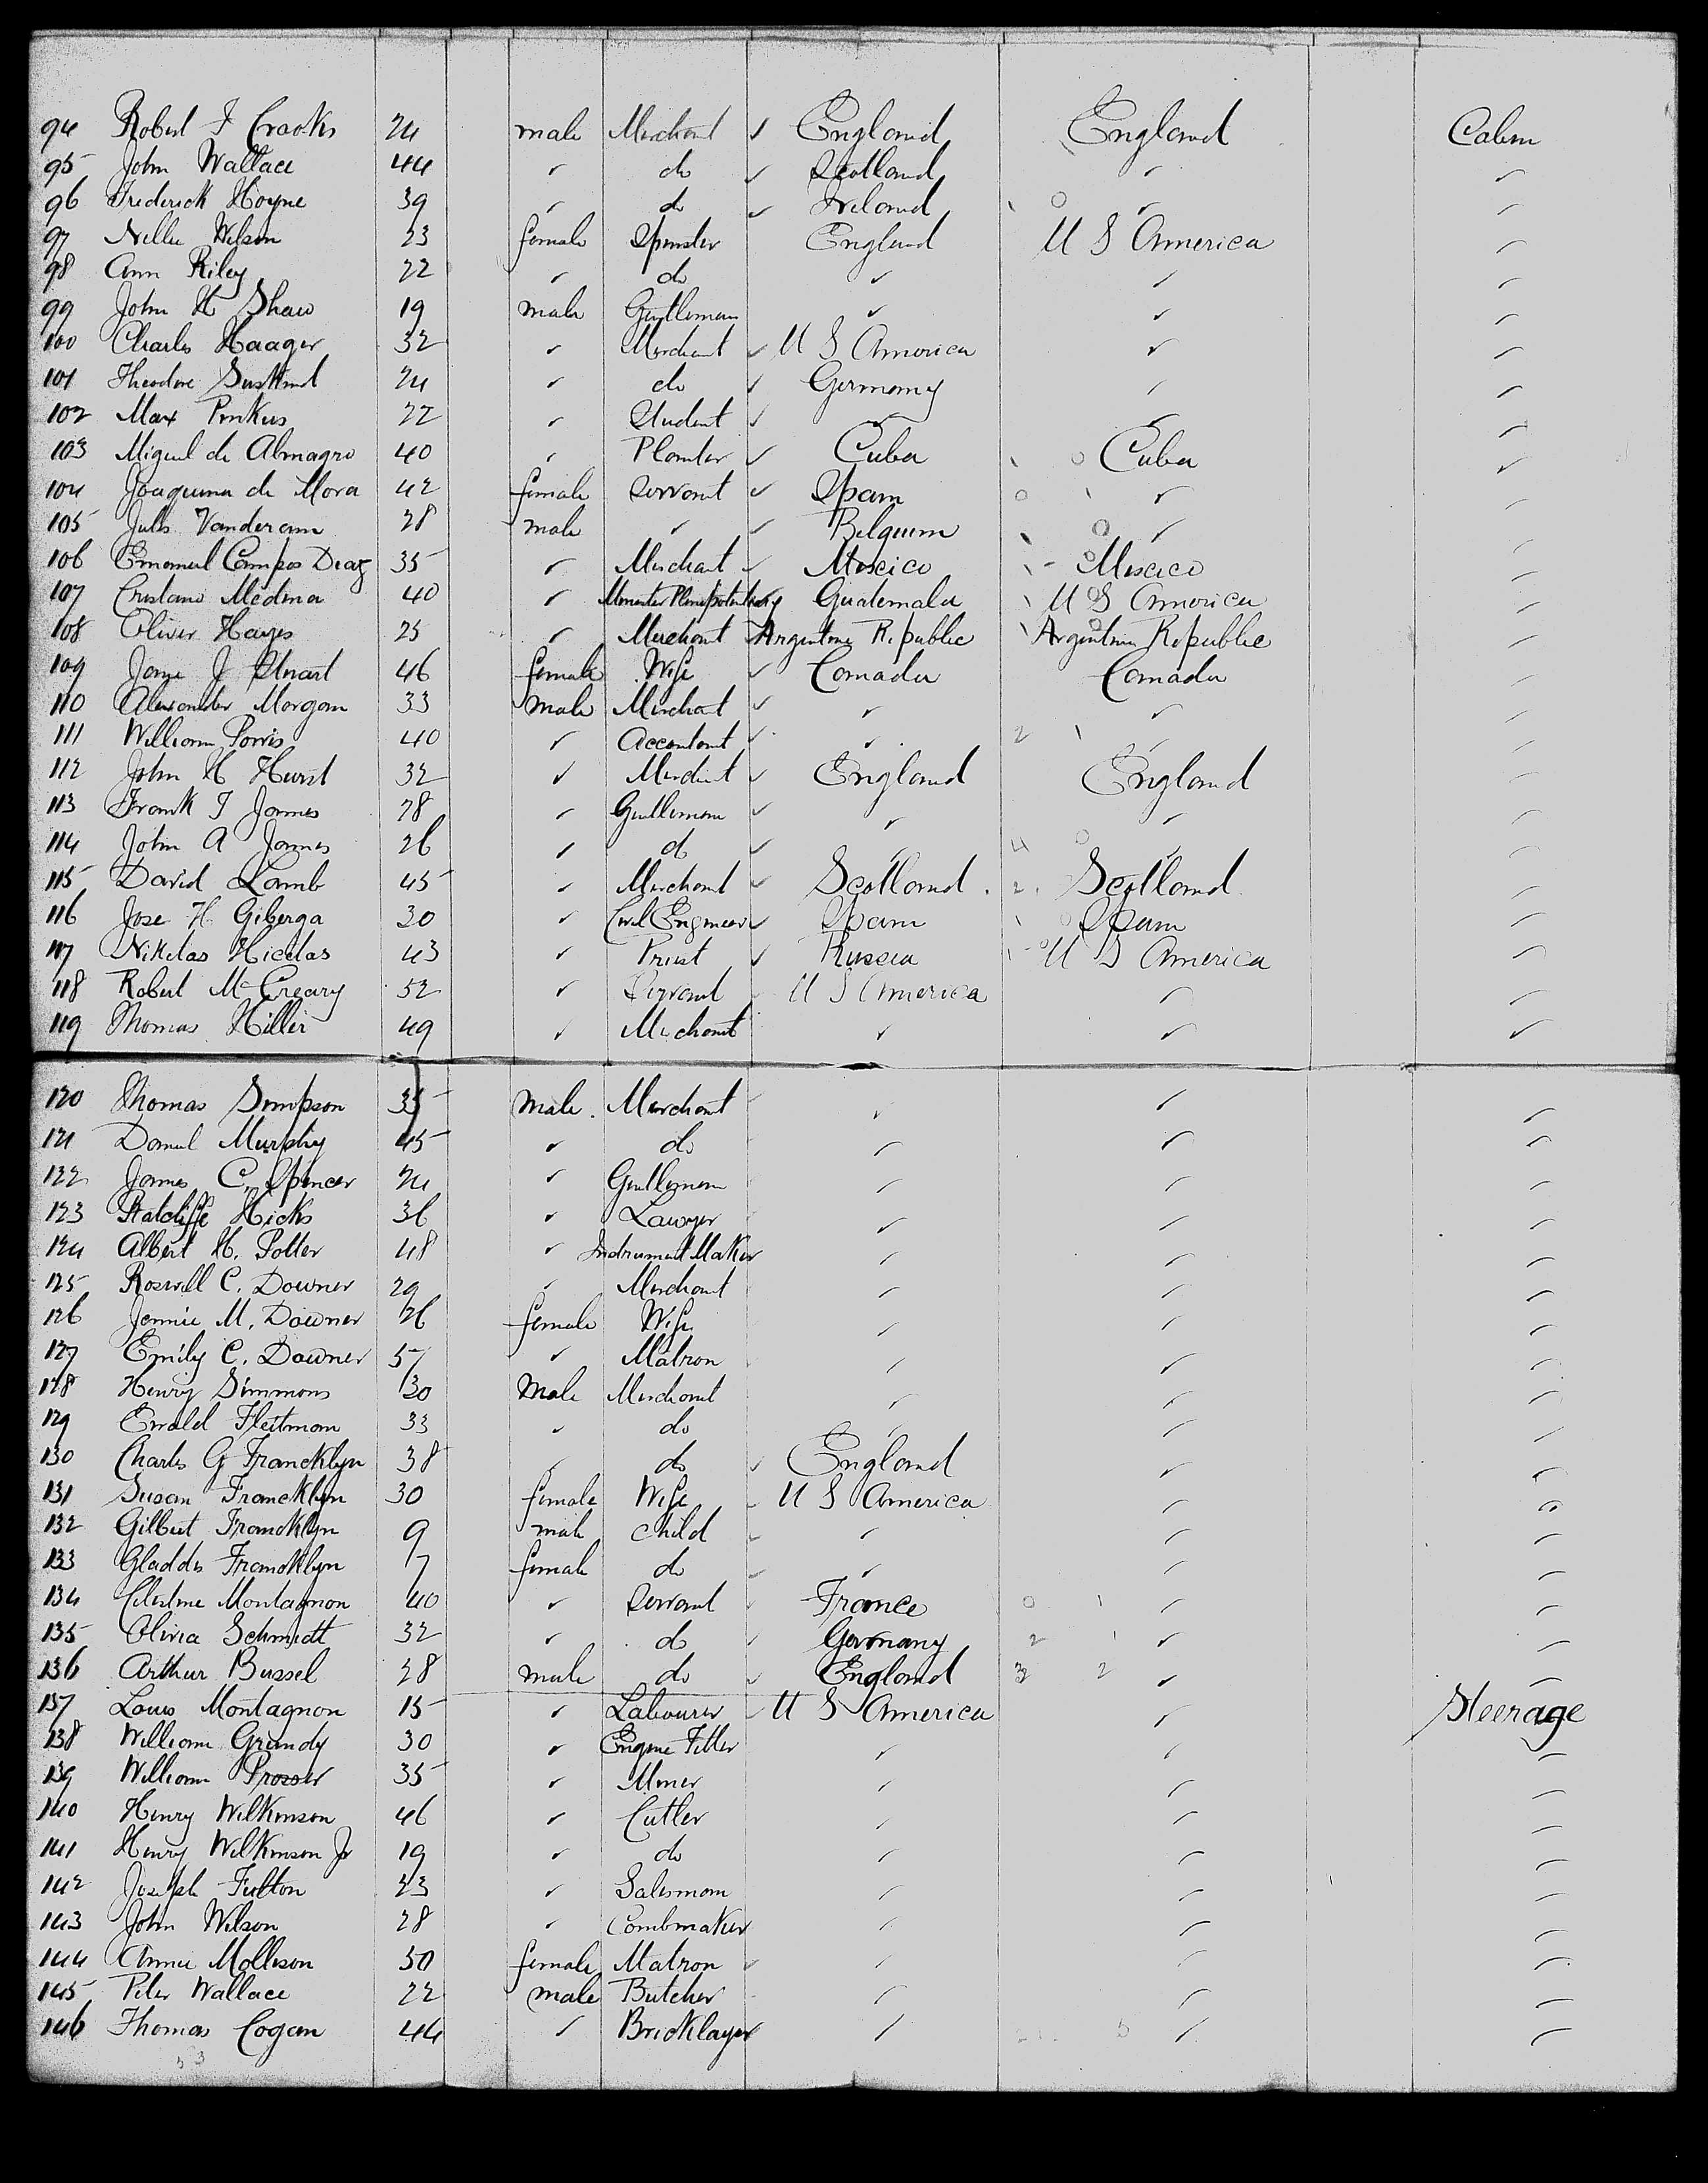 94 Robert F Crooks 24 male Merchant ✓ England England Cabin
95 John Wallace 44 ✓ do ✓ Scotland ✓ ✓
96 Frederick Hoyne 39 ✓ do ✓ Ireland ✓ ✓
97 Nellie Wilson 23 female Spinster England U S America ✓
98 Ann Riley 22 ✓ do ✓ ✓ ✓
99 John H Shaw 19 male Gentleman ✓ ✓ ✓
100 Charles Haager 32 ✓ Merchant ✓ U S America ✓ ✓
101 Theodore 24 ✓ do ✓ Germany ✓ ✓
102 Max Pinkus 22 ✓ Student ✓ ✓ ✓ ✓
103 Miguel de Almagro 40 ✓ Planter ✓ Cuba Cuba ✓
104 Joaquina de Mora 42 female Servant ✓ Spain ✓ ✓
105 Jules Vanderam 28 male ✓ ✓ Belgium ✓ ✓
106 Emanuel Campos Diaz 35 ✓ Merchant ✓ Mexico Mexico ✓
107 Cristano Medina 40 ✓ Minister Plenipotentiary Guatemala U S America ✓
108 Oliver Hayes 25 ✓ Merchant Argentine Republic Argentine Republic ✓
109 Jane J Stuart 46 female Wife ✓ Canada Canada ✓
110 Alexander Morgan 33 male Merchant ✓ ✓ ✓ ✓
111 William Porris 40 ✓ Accountant ✓ ✓ ✓ ✓
112 John H Hurst 32 ✓ Merchant ✓ England England ✓
113 Frank T James 28 ✓ Gentleman ✓ ✓ ✓ ✓
114 John A James 26 ✓ do ✓ ✓ ✓ ✓
115 David Lamb 45 ✓ Merchant ✓ Scotland Scotland ✓
116 Jose H Giberga 30 ✓ Civil Engineer ✓ Spain Spain ✓
117 Nikolas 43 ✓ Priest ✓ Russia U S America ✓
118 Robert McCreary 52 ✓ Servant U S America ✓ ✓
119 Thomas Hiller 49 ✓ Merchant ✓ ✓ ✓
120 Thomas Simpson 35 male Merchant ✓ ✓ ✓
121 Daniel Murphy 45 ✓ do ✓ ✓ ✓
122 James C. Spencer 24 ✓ Gentleman ✓ ✓ ✓
123 Ratcliffe Hicks 36 ✓ Lawyer ✓ ✓ ✓
124 Albert H. Potter 48 ✓ Instrument Maker ✓ ✓ ✓
125 Roswell C. Downer 29 ✓ Merchant ✓ ✓ ✓
126 Jennie M. Downer 26 female Wife ✓ ✓ ✓
127 Emily C. Downer 57 ✓ Matron ✓ ✓ ✓
128 Henry Simmons 30 Male Merchant ✓ ✓ ✓
129 Ewald Fleitman 33 ✓ do ✓ ✓ ✓
130 Charles G Francklyn 38 ✓ do ✓ England ✓ ✓
131 Susan Francklyn 30 female Wife ✓ U S America ✓ ✓
132 Gilbert Francklyn 9 male child ✓ ✓ ✓ ✓
133 Gladdis Francklyn 7 female do ✓ ✓ ✓ ✓
134 Celestine Montagnon 40 ✓ Servant ✓ France ✓ ✓
135 Olivia Schmidt 32 ✓ do ✓ Germany ✓ ✓
136 Arthur Bussel 28 male do ✓ England ✓ ✓
137 Louis Montagnon 15 ✓ Labourer ✓ U S America ✓ Steerage
138 William Grundy 30 ✓ Engine Fitter ✓ ✓ ✓
139 William Prosser 35 ✓ Miner ✓ ✓ ✓
140 Henry Wilkinson 46 ✓ Cutler ✓ ✓ ✓
141 Henry Wilkinson Jr 19 ✓ do ✓ ✓ ✓
142 Joseph Fulton 23 ✓ Salesman ✓ ✓ ✓
143 John Wilson 28 ✓ Combmaker ✓ ✓ ✓
144 Annie Mollison 50 female Matron ✓ ✓ ✓ ✓
145 Peter Wallace 22 male Butcher ✓ ✓ ✓
146 Thomas Cogan 44 ✓ Bricklayer ✓ ✓ ✓
53